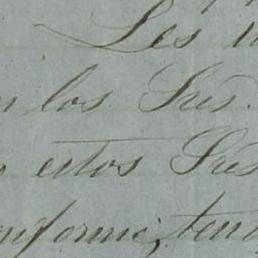 Les
los Sres.
estos Sres
nforme, tend